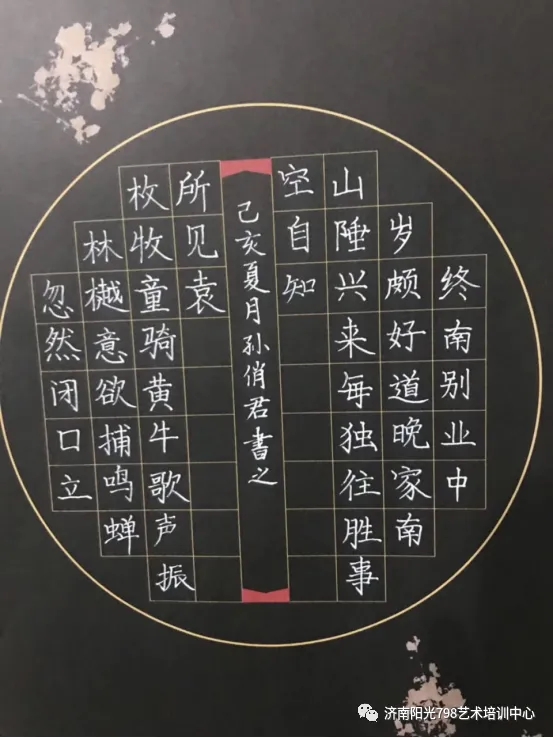 终南别业中
岁颇好道晚家南
山陲兴来每独往胜事
空自知
己亥夏月孙俏君書之
所见袁
枚牧童骑黄牛歌声振
林樾意欲捕鸣蝉
忽然闭口立
济南阳光798艺术培训中心